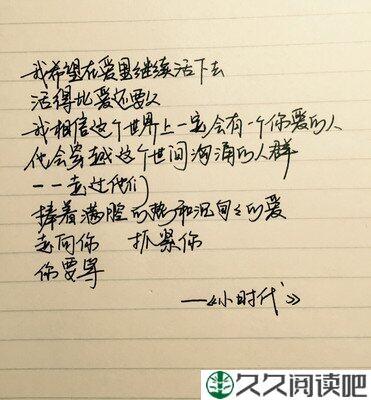 我希望在爱里继续活下去
活得比爱还要久
我相信这个世界上一定会有一个你爱的人
他会穿越这个世间汹涌的人群
一一走过他们
捧着满腔的热和沉甸々的爱
走向你 抓紧你
你要等
——《小时代》
久久阅读吧